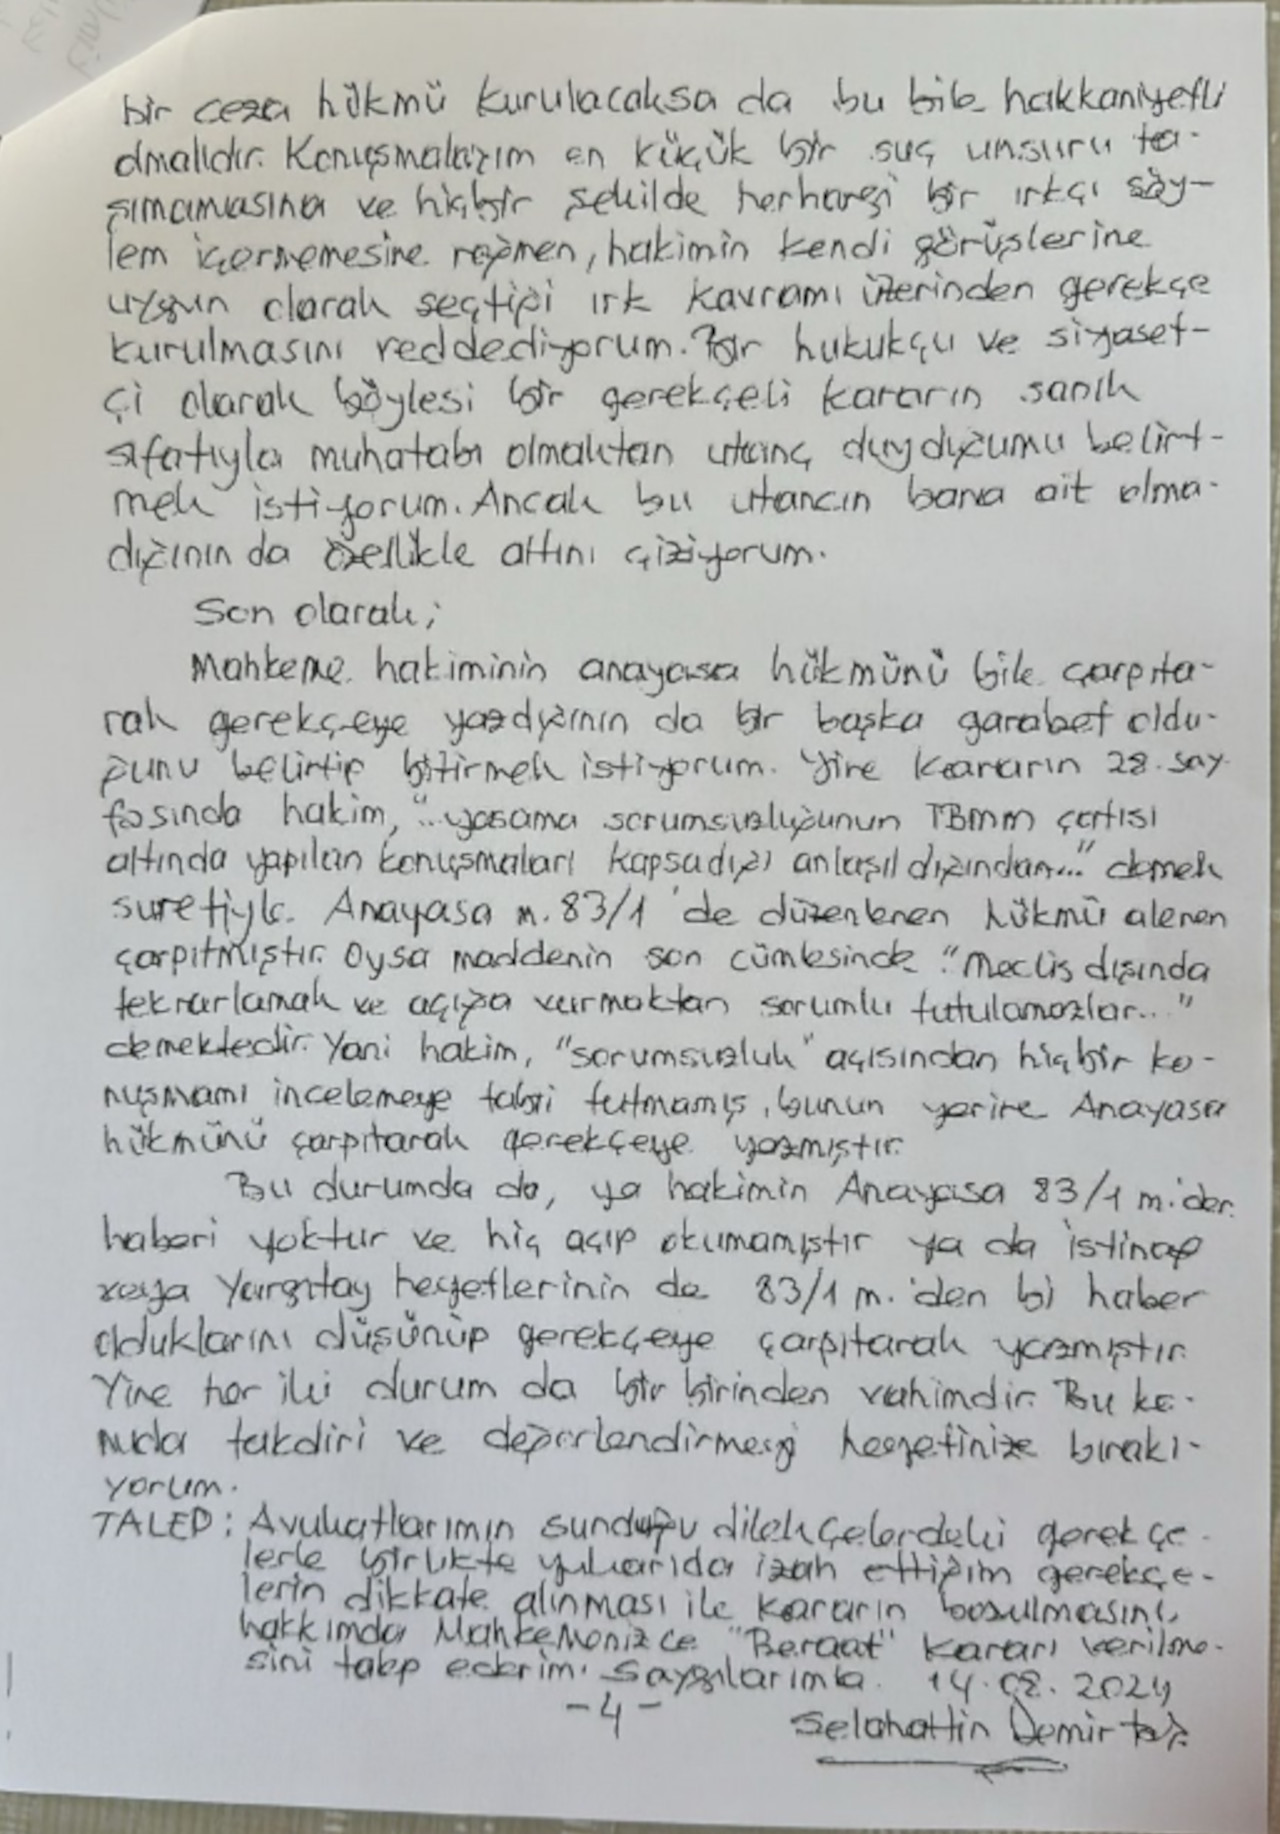 bir ceza hükmü kurulacaksa da bu bile hakkaniyetli
olmalıdır. Konuşmalarım en küçük bir suç unsuru ta-
şımamasına ve hiçbir şekilde herhangi bir ırkçı söy-
lem içermemesine rağmen, hakimin kendi görüşlerine
uygun olarak seçtiği ırk kavramı üzerinden gerekçe
kurulmasını reddediyorum. Bir hukukçu ve siyaset-
çi olarak böylesi bir gerekçeli kararın sanık
sıfatıyla muhatabı olmaktan utanç duyduğumu belirt-
mek istiyorum. Ancak bu utancın bana ait olma-
dığının da özellikle altını çiziyorum.
Son olarak;
Mahkeme hakiminin anayasa hükmünü bile çarpıta-
rak gerekçeye yazdığının da bir başka garabet oldu-
ğunu belirtip bitirmek istiyorum. Yine kararın 28. say-
fasında hakim, "...yasama sorumsuzluğunun TBMM çatısı
altında yapılan konuşmaları kapsadığı anlaşıldığından..." demek
suretiyle Anayasa m. 83/1 'de düzenlenen hükmü alenen
çarpıtmıştır. Oysa maddenin son cümlesinde "Meclis dışında
tekrarlamak ve açığa vurmaktan sorumlu tutulamazlar..."
demektedir. Yani hakim, "sorumsuzluk" açısından hiçbir ko-
nuşmamı incelemeye tabi tutmamış, bunun yerine Anayasa
hükmünü çarpıtarak gerekçeye yazmıştır.
Bu durumda da, ya hakimin Anayasa 83/1 m.'den
haberi yoktur ve hiç açıp okumamıştır ya da istinaf
veya Yargıtay heyetlerinin de 83/1 m.'den bi haber
olduklarını düşünüp gerekçeye çarpıtarak yazmıştır.
Yine her iki durum da bir birinden vahimdir. Bu ko-
nuda takdiri ve değerlendirmeyi heyetinize bırakı-
yorum.
TALEP: Avukatlarımın sunduğu dilekçelerdeki gerekçe-
lerle birlikte yukarıda izah ettiğim gerekçe-
lerin dikkate alınması ile kararın bozulmasını,
hakkımda Mahkemenizce "Beraat" kararı verilme-
sini talep ederim. Saygılarımla. 14.08.2024
-4-
Selahattin Demirtaş